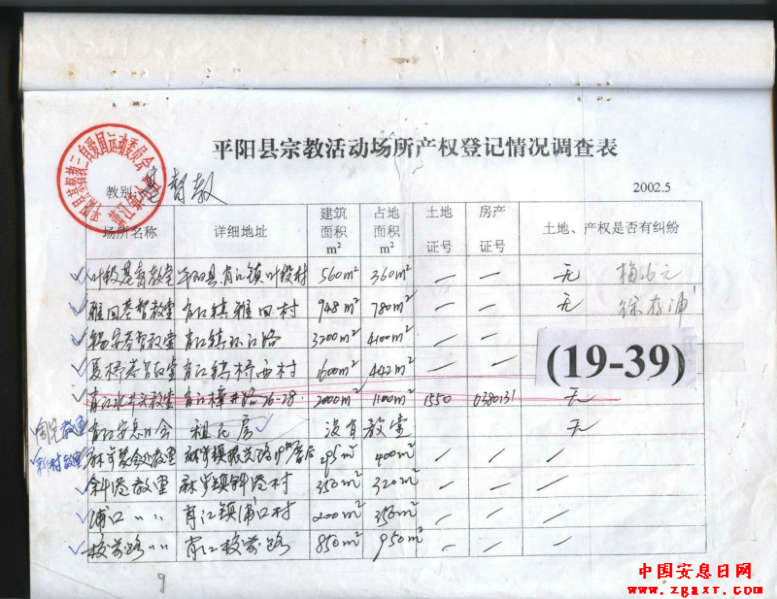 平阳县宗教活动场所产权登记情况调查表
教别 基督教 2002.5
场所名称 详细地址 建筑面积m² 占地面积m² 土地证号 房产证号 土地、产权是否有纠纷
叶段基督教堂 平阳县肖江镇叶段村 560m² 360m² — — 无
雅田基督教堂 肖江镇雅田村 948m² 780m² — — 无
基督教堂 肖江镇 江路 3200m² 4100m² — —
夏桥基督教堂 肖江镇桥西村 1600m² 442m² — —
(19-39)
肖江 教堂 肖江 76-78 2000m² 1100m² 1550 0380131 无
肖江安息日会 租民房 没有教堂 无
麻步 教堂 麻步镇 400m²
斜港教堂 麻步镇斜港村 350m² 320m²
浦口 〃 〃 肖江镇浦口村 200m² 350m²
校前路 〃 〃 肖江校前路 850m² 950m²
9
中国安息日网
www.zgaxr.com